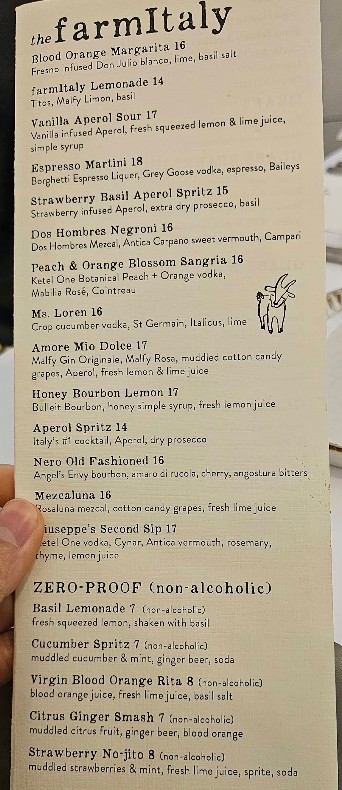 the farmItaly
Blood Orange Margarita 16
Fresno infused Don Julio blanco, lime, basil salt
farmItaly Lemonade 14
Titos, Malfy Limon, basil
Vanilla Aperol Sour 17
Vanilla infused Aperol, fresh squeezed lemon & lime juice,
simple syrup
Espresso Martini 18
Borghetti Espresso Liquer, Grey Goose vodka, espresso, Baileys
Strawberry Basil Aperol Spritz 15
Strawberry infused Aperol, extra dry prosecco, basil
Dos Hombres Negroni 16
Dos Hombres Mezcal, Antica Carpano sweet vermouth, Campari
Peach & Orange Blossom Sangria 16
Ketel One Botanical Peach + Orange vodka,
Mabilia Rosé, Cointreau
Ms. Loren 16
Crop cucumber vodka, St Germain, Italicus, lime
Amore Mio Dolce 17
Malfy Gin Originale, Malfy Rosa, muddled cotton candy
grapes, Aperol, fresh lemon & lime juice
Honey Bourbon Lemon 17
Bulleit Bourbon, honey simple syrup, fresh lemon juice
Aperol Spritz 14
Italy's #1 cocktail, Aperol, dry prosecco
Nero Old Fashioned 16
Angel's Envy bourbon, amaro di rucola, cherry, angostura bitters
Mezcaluna 16
Rosaluna mezcal, cotton candy grapes, fresh lime juice
iuseppe's Second Sip 17
etel One vodka, Cynar, Antica vermouth, rosemary,
thyme, lemon juice
ZERO-PROOF (non-alcoholic)
Basil Lemonade 7 (non-alcoholic)
fresh squeezed lemon, shaken with basil
Cucumber Spritz 7 (non-alcoholic)
muddled cucumber & mint, ginger beer, soda
Virgin Blood Orange Rita 8 (non-alcoholic)
blood orange juice, fresh lime juice, basil salt
Citrus Ginger Smash 7 (non-alcoholic)
muddled citrus fruit, ginger beer, blood orange
Strawberry No-jito 8 (non-alcoholic)
muddled strawberries & mint, fresh lime juice, sprite, soda